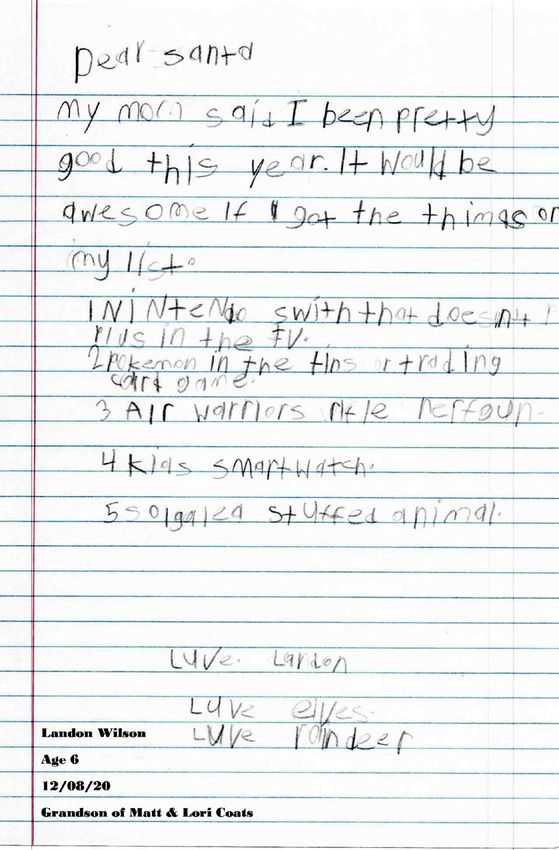 Dear santa
my mom said I been pretty
good this year. It would be
awesome If I got the things on
my list.
1 NiNteNdo swith that doesnt
plus in the tv.
2 pokemon in the tins or trading
card game.
3 AIr warriors rifle nerfgun.
4 kids smartwatch.
5 solgalea stuffed animal.
Luve. Landon
Luve elves.
Luve raindeer
Landon Wilson
Age 6
12/08/20
Grandson of Matt & Lori Coats